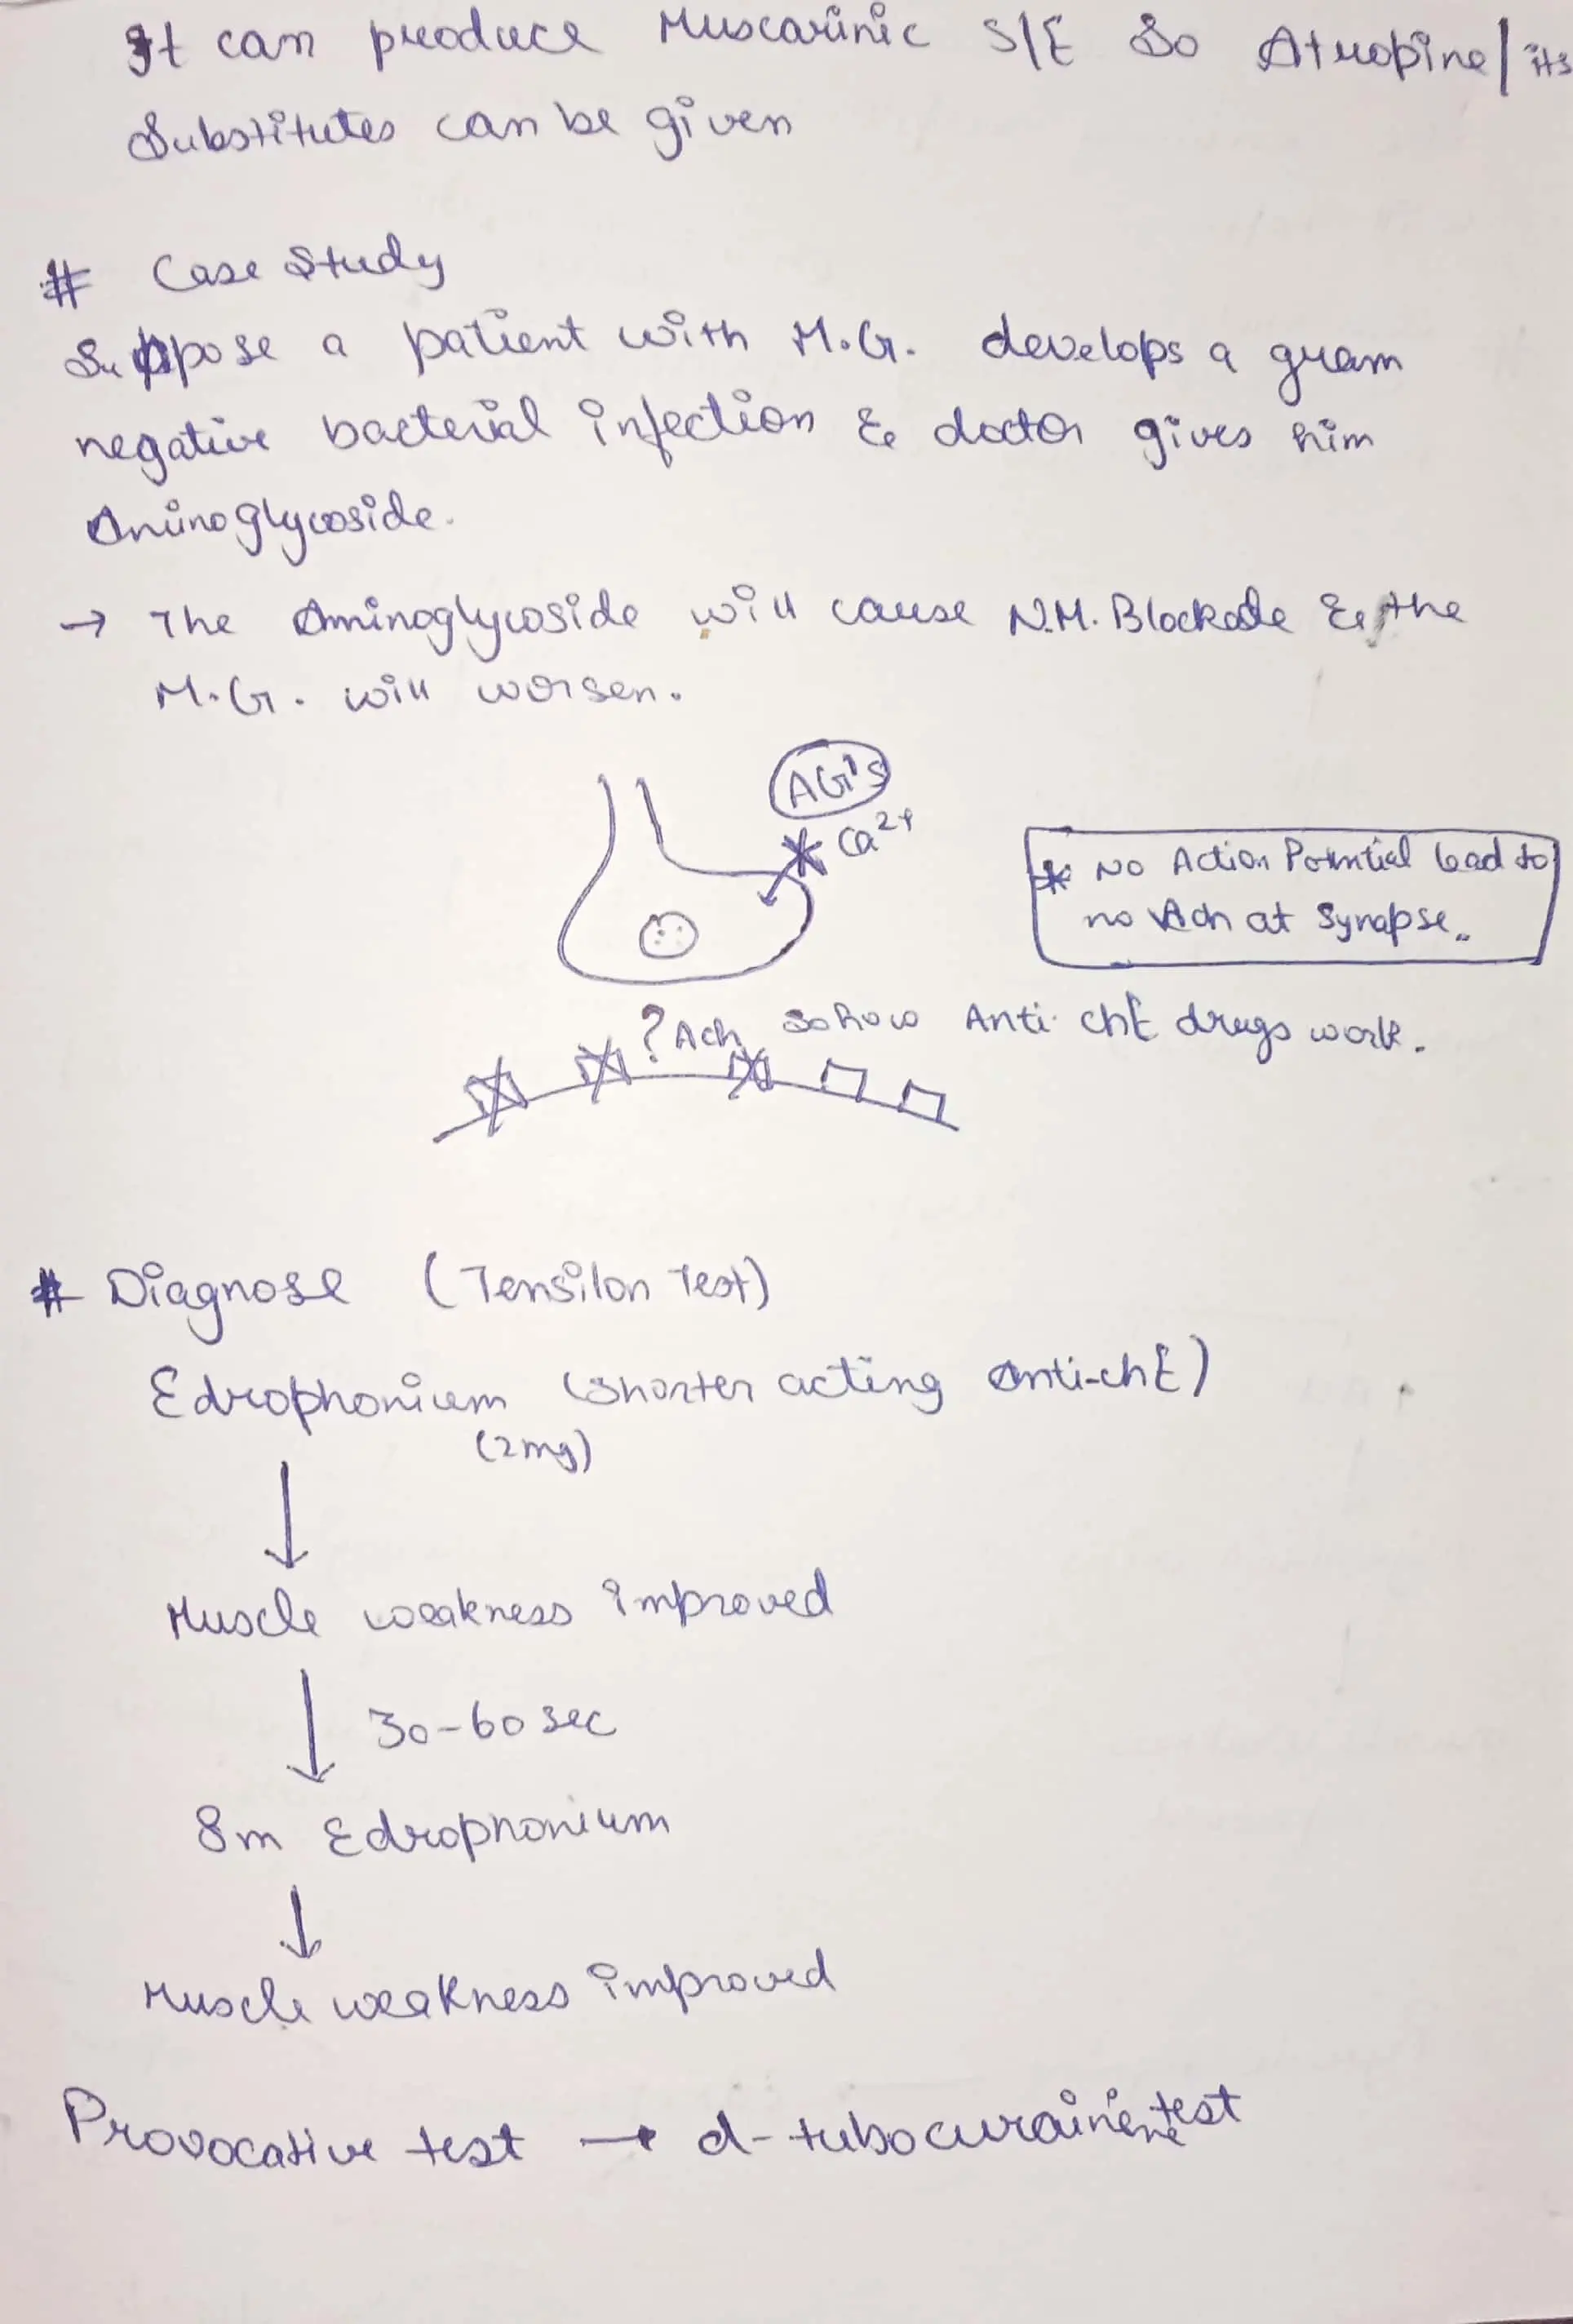 It can produce Muscarinic S/E So Atropine/its
Substitutes can be given
# Case Study
Suppose a patient with M.G. develops a gram
negative bacterial infection & doctor gives him
Aminoglycoside.
→ The Aminoglycoside will cause N.M. Blockade & the
M.G. will worsen.
AG's
Ca2+
* No Action Potential lead to
no Ach at Synapse.
? Ach So how Anti-chE drugs work.
# Diagnose (Tensilon Test)
Edrophonium (Shorter acting Anti-chE)
(2mg)
↓
Muscle weakness improved
↓ 30-60 sec
8m Edrophonium
↓
Muscle weakness improved
Provocative test → d-tubocuraine test